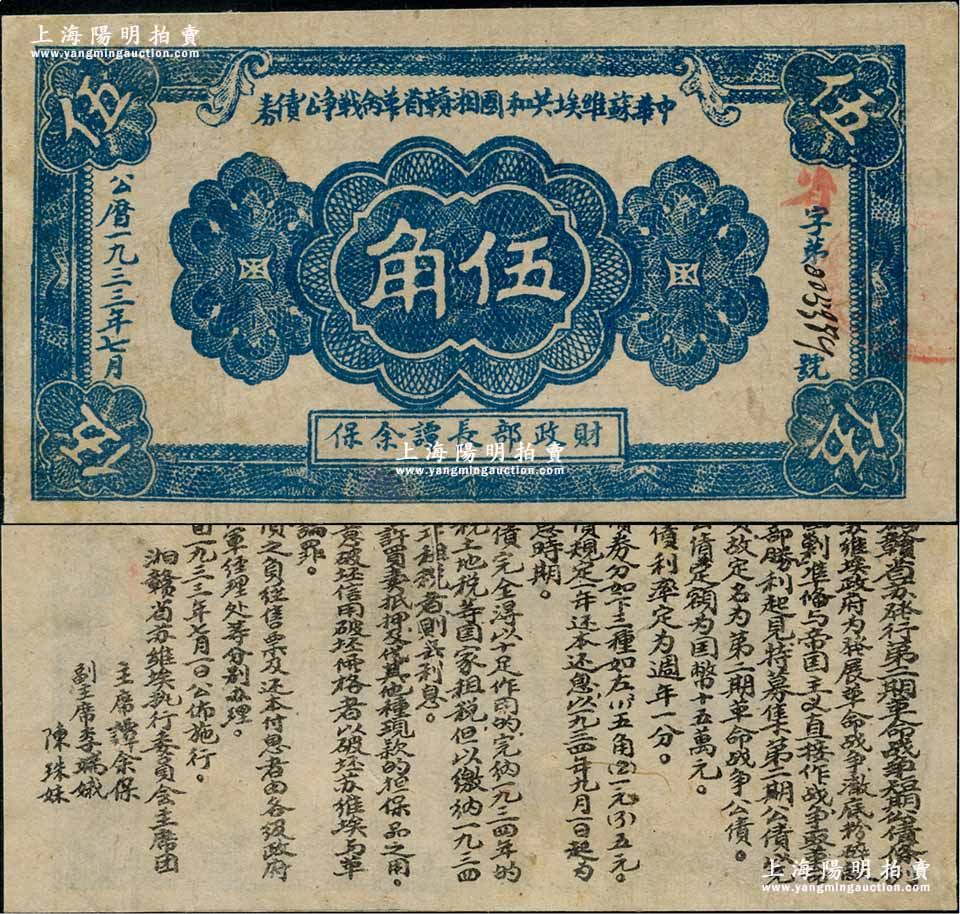 上海陽明拍賣
www.yangmingauction.com
中華蘇維埃共和國湘贛省革命戰爭公債券
伍
伍
伍
伍
省字第號
伍角
公曆一九三三年七月
財政部長譚余保
上海陽明拍賣
www.yangmingauction.com
湘贛省苏發行第二期革命战争短期公債條
維埃政府为發展革命战争澈底粉碎敌
剿準俻与帝国主义直接作战争取
部勝利起見特募集第二期公債
故定名为第二期革命战争公債。
公債定額为国幣十五萬元。
債利率定为週年一分。
債券分如下三種如左(1)五角(2)一元(3)五元。
債規定一年还本还息以一九三四年九月一日起为
息時期。
債完全得以十足作用的完纳一九三四年的
税土地税等国家租税但以缴纳一九三四
税者則无利息。
許買卖抵押及代其他種現款的担保品之用。
意破坯信用破坯價格者以破坯苏维埃与革
論罪。
債之負经售票及还本付息者由各级政府
軍经理处等分别办理。
自一九三三年七月一日公佈施行。
湘贛省苏维埃执行委員会主席团
主席譚余保
副主席李端娥
陳珠妹
上海陽明拍賣
www.yangmingauction.com